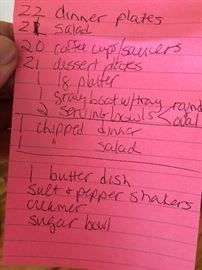 22 dinner plates
21 salad
20 coffee cups/saucers
21 dessert plates
1 lg platter
1 gravy boat w/tray
2 serving bowls < round
oval
1 chipped dinner
1 " salad
1 butter dish
salt & pepper shakers
creamer
sugar bowl